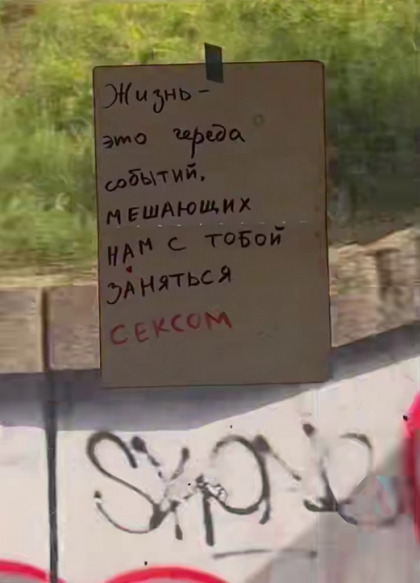 Жизнь -
это череда
событий,
МЕШАЮЩИХ
НАМ С ТОБОЙ
ЗАНЯТЬСЯ
СЕКСОМ